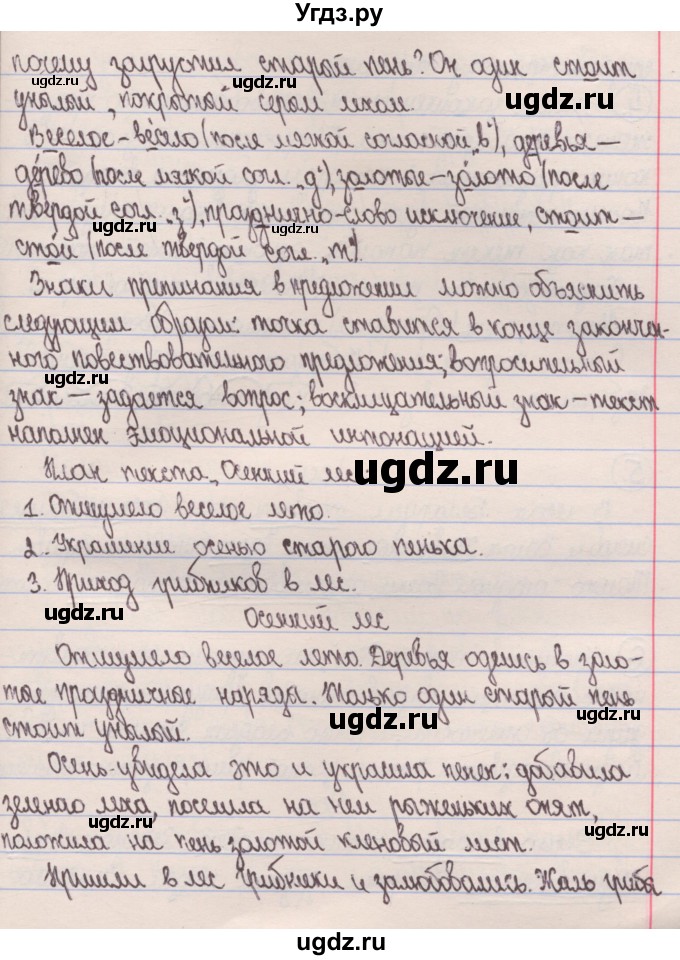 Угдз.ру
почему загрустил старый пень? Он один стоит
унылый, покрытый серым мхом.
Веселое – весело (после мягкой согласной „в“), деревья –
дерево (после мягкой согл. „д“), золотые – золото (после
твердой согл. „з“), празднично – слово исключение, стоит –
стой (после твердой согл. „т“).
Знаки препинания в предложении можно объяснить
следующим образом: точка ставится в конце закончен-
ного повествовательного предложения; вопросительный
знак – задается вопрос; восклицательный знак – текст
наполнен эмоциональной интонацией.
План текста „Осенний лес“:
1. Отшумело веселое лето.
2. Украшение осенью старого пенька.
3. Приход грибников в лес.
Осенний лес
Отшумело веселое лето. Деревья оделись в золо-
тые праздничные наряда. Только один старый пень
стоит унылый.
Осень увидела это и украсила пенек: добавила
зеленого мха, поселила на нем рыженьких опят,
положила на пень золотой кленовый лист.
Пришли в лес грибники и залюбовались. Жаль грибы
ugdz.ru
ugdz.ru
ugdz.ru
ugdz.ru
ugdz.ru
ugdz.ru
ugdz.ru
ugdz.ru
ugdz.ru
ugdz.ru
ugdz.ru
ugdz.ru
ugdz.ru
ugdz.ru